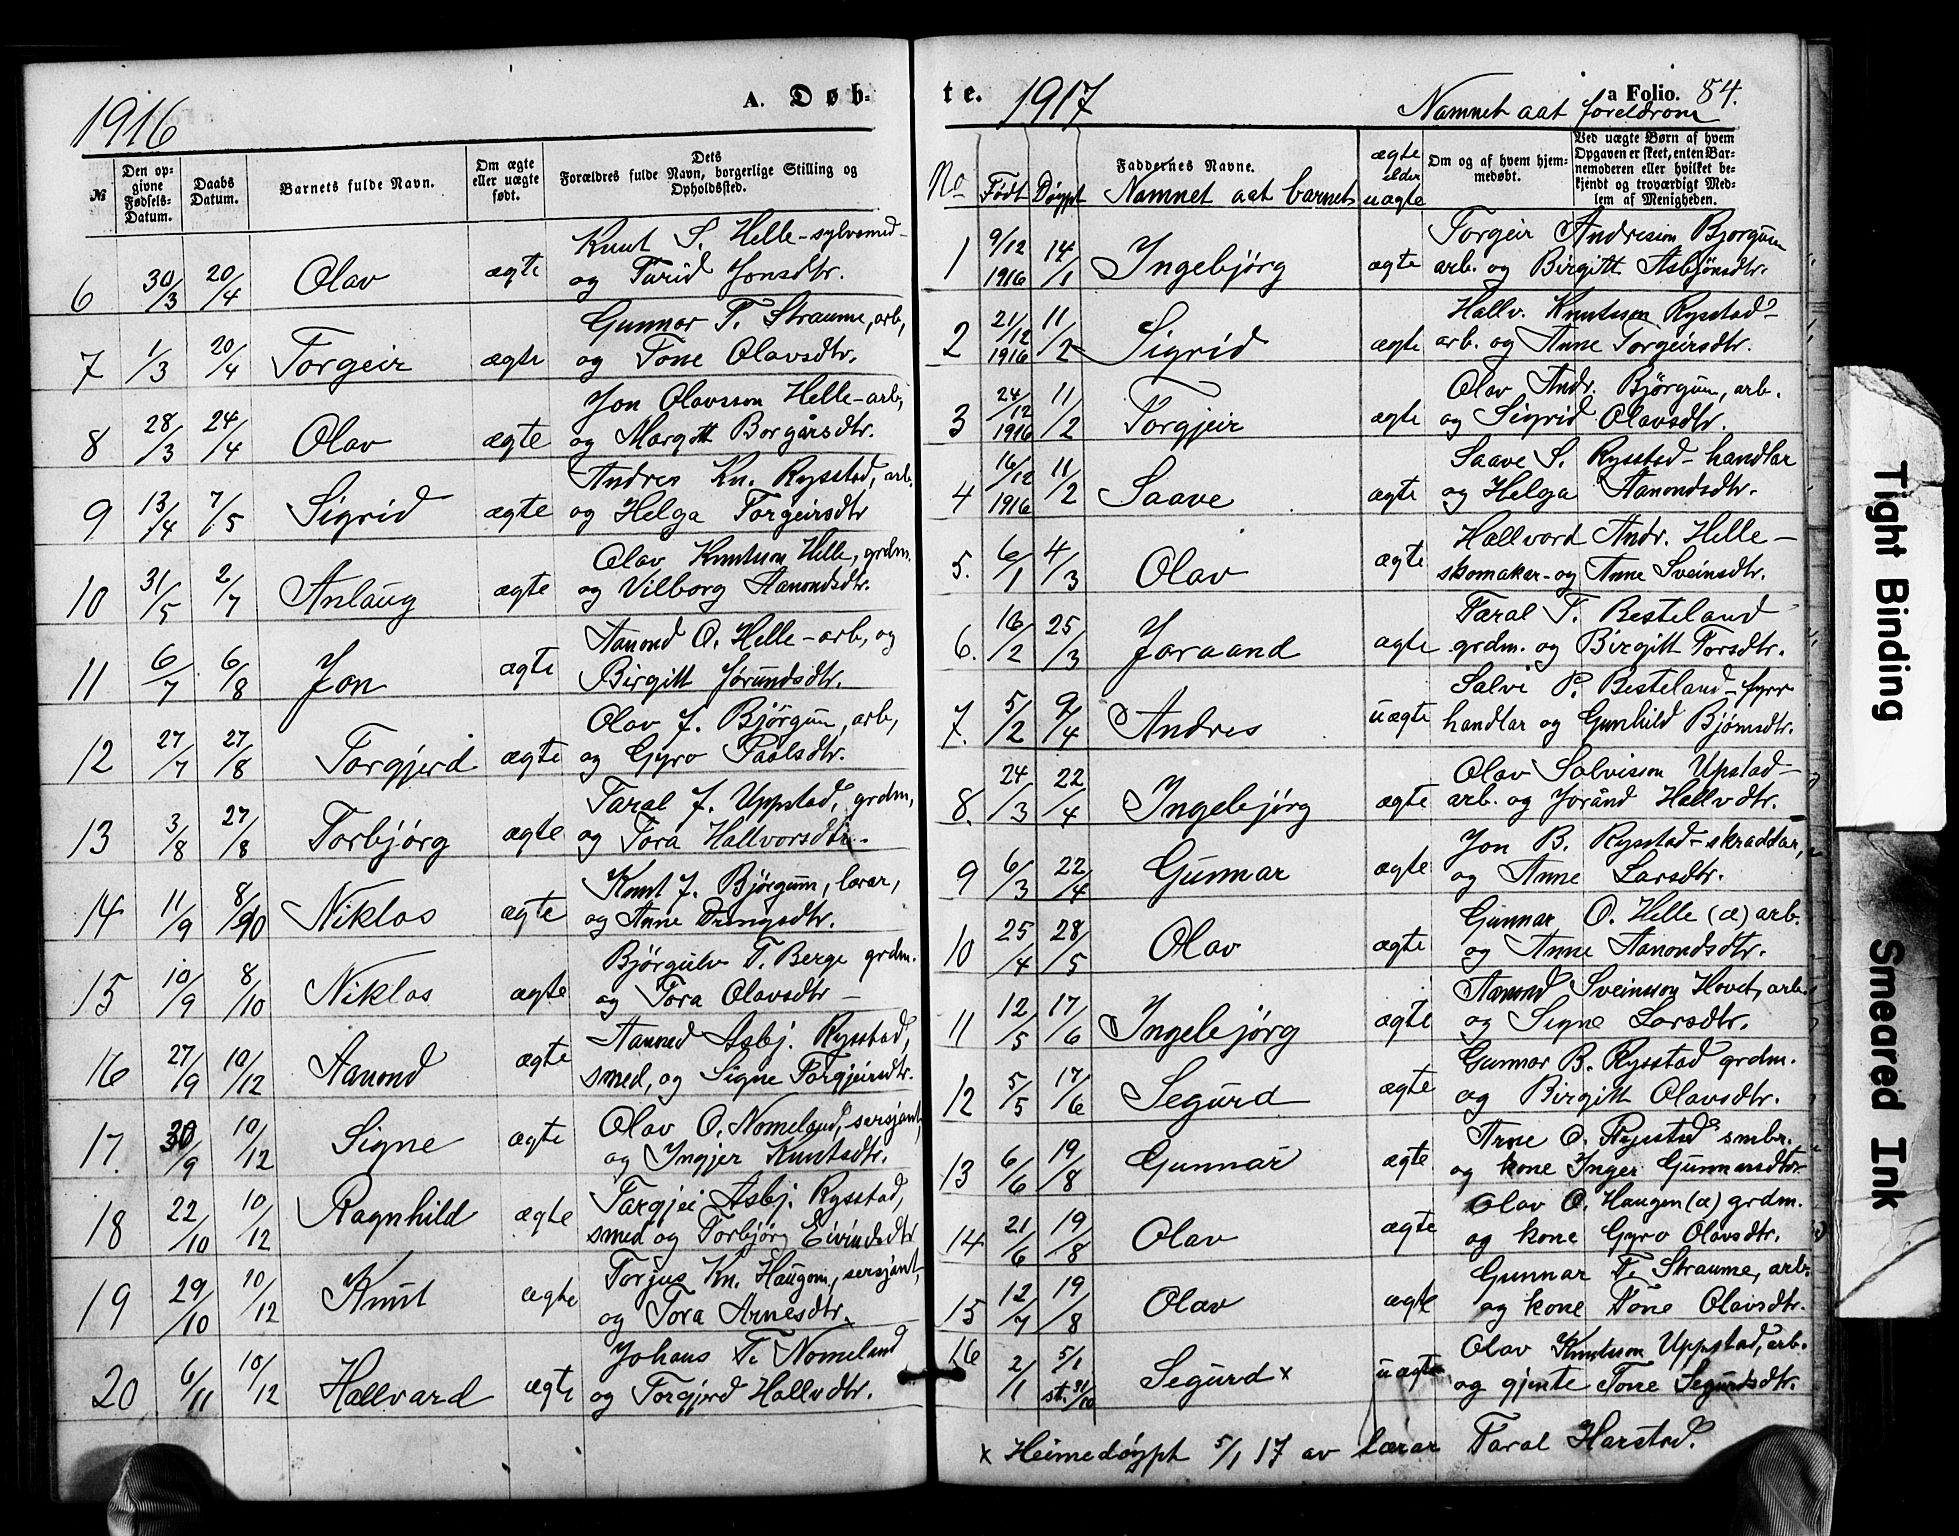 1916
A. Døb-
№
Den op-
givne
Fødsels-
Datum.
Daabs
Datum.
Barnets fulde Navn.
Om ægte
eller uægte
født.
Dets
Forældres fulde Navn, borgerlige Stilling og
Opholdssted.
Knut S. Helle - sylvsmed -
6 30/3 20/4 Olav ægte og Turid Jonsdtr.
Gunnar T. Straume, arb,
7 1/3 20/4 Torgeir ægte og Tone Olavsdtr.
Jon Olavsson Helle - arb,
8 28/3 24/4 Olav ægte og Margött Borgårsdtr.
Andres Kn. Rysstad, arb.
9 13/4 7/5 Sigrid ægte og Helga Torgeirsdtr
Olav Knutson Helle, grdm.
10 31/5 2/7 Anlaug ægte og Vilborg Aanondsdtr.
Aanond O. Helle - arb, og
11 6/7 6/8 Jon ægte Birgitt Jørundsdtr.
Olav J. Bjørgum, arb,
12 27/7 27/8 Torgjerd ægte og Gyro Paalsdtr.
Taral J. Uppstad, grdm,
13 3/8 27/8 Torbjørg ægte og Tora Hallvorsdtr.
Knut J. Bjørgum, lærar,
14 11/9 8/10 Niklas ægte og Anne Drengsdtr.
Bjørgulv T. Berge grdm.
15 10/9 8/10 Niklas ægte og Tora Olavsdtr -
Aanond Asbj. Rysstad,
16 27/9 10/12 Aanond ægte smed, og Signe Torgjeirsdtr.
Olav O. Nomeland, sersjant,
17. 30/9 10/12 Signe ægte og Ingjer Knutsdtr.
Targjei Asbj. Rysstad,
18 22/10 10/12 Ragnhild ægte smed og Torbjørg Eivindsdtr
Torjus Kn. Haugom, sersjant,
19 29/10 10/12 Knut ægte og Tora Arnesdtr.
Johans T. Nomeland
20 6/11 10/12 Hallvard ægte og Torgjerd Hallvdtr.
te. 1917
a Folio. 84.
Namnet aat foreldrom
No
Født
Døypt
Faddernes Navne.
Namnet aat barnet
ægte
elder
uægte
Om og af hvem hjem-
medøbt.
Ved uægte Børn af hvem
Opgaven er skeet, enten Bar-
nemoderen eller hvilket be-
kjendt og troværdigt Med-
lem af Menigheden.
Torgeir Andresson Bjorgum
1 9/12 1916 14/1 Ingebjörg ægte arb. og Birgitt Asbjönsdtr.
Hallv. Knutson Rysstad -
2 21/12 1916 11/2 Sigrid ægte arb. og Anne Torgeirsdtr.
Olav Andr. Bjørgum, arb.
3 24/12 1916 11/2 Torgjeir ægte og Sigrid Olavsdtr.
Saave S. Rysstad - handlar
4 16/12 1916 11/2 Saave ægte og Helga Aanondsdtr.
Hallvard Andr. Helle -
5. 6/1 4/3 Olav ægte skomaker - og Anne Sveinsdtr.
Taral T. Besteland
6. 16/2 25/3 Joraand ægte grdm. og Birgitt Torsdtr.
Salvi P. Besteland - fyrr
7. 5/2 9/4 Andres uægte handlar og Gunhild Bjørnsdtr.
Olav Salvisson Upstad -
8. 24/3 22/4 Ingebjørg ægte arb. og Jorånd Hallvdtr.
Jon B. Rysstad - skraddar,
9 6/3 22/4 Gunnar ægte og Anne Larsdtr.
Gunnar O. Helle (æ) arb.
10 25/4 28/5 Olav ægte og Anne Aanondsdtr.
Aanond Sveinsson Hovet, arb.
11 12/5 17/6 Ingebjörg ægte og Signe Larsdtr.
Gunnar B. Rysstad grdm.
12 5/5 17/6 Segurd ægte og Birgitt Olavsdtr.
Arne O. Rysstad smbr.
13 6/6 19/8 Gunnar ægte og kone Inger Gunnarsdtr
Olav O. Haugen (æ) grdm.
14 21/6 19/8 Olav ægte og kone Gyro Olavsdtr.
Gunnar T. Straume, arb.
15 12/7 19/8 Olav ægte og kone Tone Olavsdtr.
Olav Knutson Uppstad, arb.
16 2/1 5/1 st. 31/10 Segurd x uægte og gjente Tone Segurdsdtr.
x Heimedøypt 5/1 17 av lærar Taral Harstad.
Tight Binding
Smeared Ink